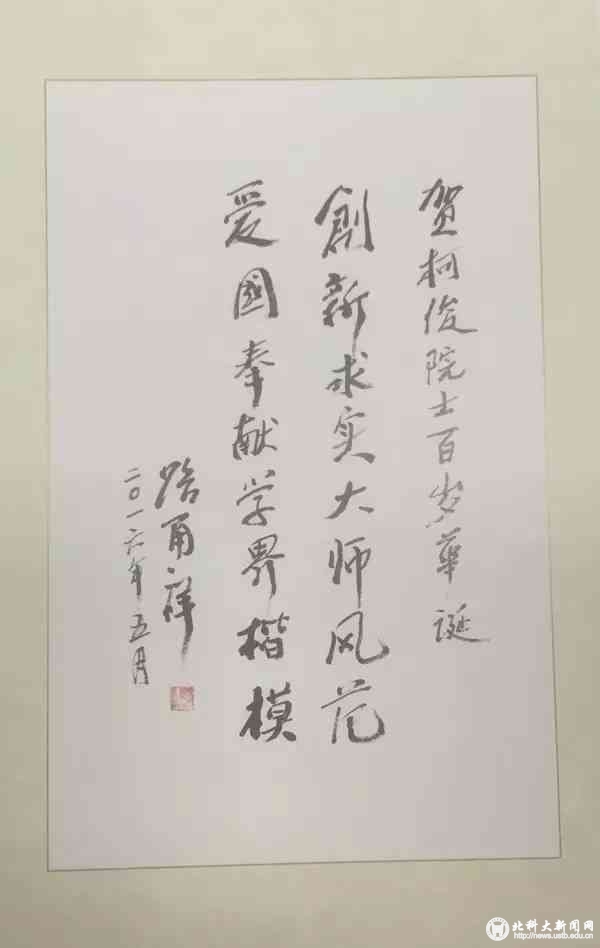 贺柯俊院士百岁華誕
創新求实大师风范
爱國奉献学界楷模
路甬祥
二〇一六年五月
北科大新闻网
http://news.ustb.edu.cn